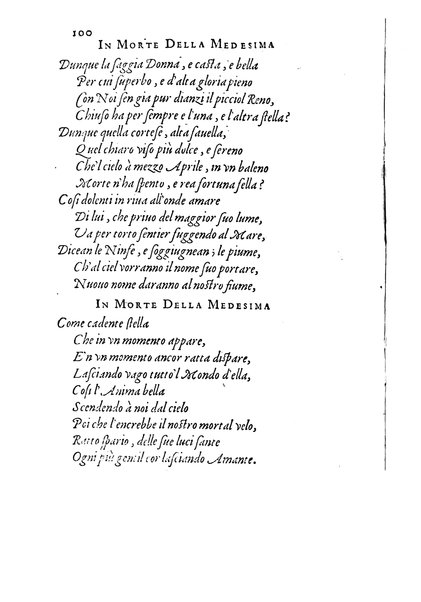 100
IN MORTE DELLA MEDESIMA
Dunque la saggia Donna, e casta, e bella
Per cui superbo, e d'alta gloria pieno
Con Noi sen gia pur dianzi il picciol Reno,
Chiuso ha per sempre e l'una, e l'altra stella?
Dunque quella cortese, alta fauella,
Quel chiaro viso più dolce, e sereno
Che'l cielo à mezzo Aprile, in vn baleno
Morte n'ha spento, e rea fortuna fella?
Cosi dolenti in riua all'onde amare
Di lui, che priuo del maggior suo lume,
Va per torto sentier fuggendo al Mare,
Dicean le Ninfe, e soggiugnean; le piume,
Ch'al ciel vorranno il nome suo portare,
Nuouo nome daranno al nostro fiume,
IN MORTE DELLA MEDESIMA
Come cadente stella
Che in vn momento appare,
E'n vn momento ancor ratta dispare,
Lasciando vago tutto'l Mondo d'ella,
Cosi l'Anima bella
Scendendo à noi dal cielo
Poi che l'encrebbe il nostro mortal velo,
Ratto spario, delle sue luci sante
Ogni più gentil cor lasciando Amante.